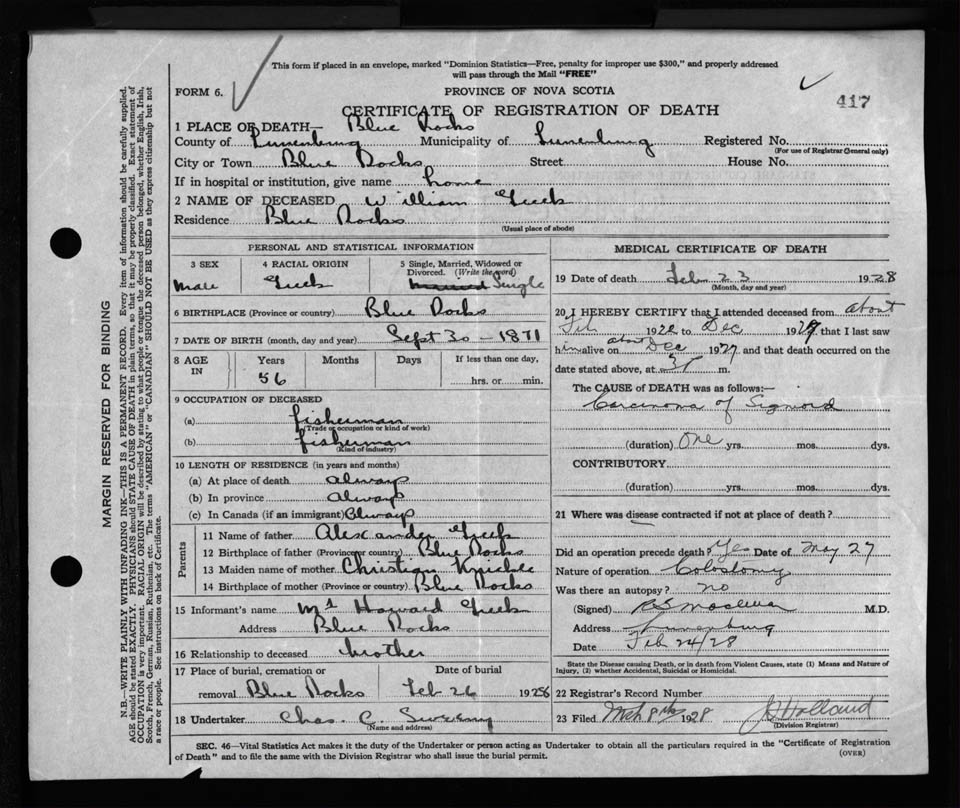 This form if placed in an envelope, marked "Dominion Statistics—Free, penalty for improper use $300," and properly addressed
will pass through the Mail "FREE"
FORM 6.
PROVINCE OF NOVA SCOTIA
417
CERTIFICATE OF REGISTRATION OF DEATH
1 PLACE OF DEATH— Blue Rocks
County of Lunenburg Municipality of Lunenburg Registered No.
(For use of Registrar General only)
City or Town Blue Rocks Street House No.
If in hospital or institution, give name home
2 NAME OF DECEASED William
Residence Blue Rocks
(Usual place of abode)
MARGIN RESERVED FOR BINDING
N.B.—WRITE PLAINLY WITH UNFADING INK—THIS IS A PERMANENT RECORD. Every item of information should be carefully supplied.
AGE should be stated EXACTLY. PHYSICIANS should STATE CAUSE OF DEATH in plain terms, so that it may be properly classified. Exact statement of
OCCUPATION is very important. RACIAL ORIGIN will be described by stating to what people or tongue the deceased person belonged, whether English, Irish,
Scotch, French, German, Russian, Ruthenian, etc. The terms "AMERICAN" or "CANADIAN" SHOULD NOT BE USED as they express citizenship but not
a race or people. See instructions on back of Certificate.
PERSONAL AND STATISTICAL INFORMATION
3 SEX
Male
4 RACIAL ORIGIN
5 Single, Married, Widowed or
Divorced. (Write the word)
Married Single
6 BIRTHPLACE (Province or country) Blue Rocks
7 DATE OF BIRTH (month, day and year) Sept 30 - 1871
8 AGE IN
Years Months Days If less than one day,
56 hrs. or min.
9 OCCUPATION OF DECEASED
(a) fisherman
(Trade or occupation or kind of work)
(b) fisherman
(Kind of industry)
10 LENGTH OF RESIDENCE (in years and months)
(a) At place of death always
(b) In province always
(c) In Canada (if an immigrant) Always
Parents
11 Name of father Alexander
12 Birthplace of father (Province or country) Blue Rocks
13 Maiden name of mother Christian
14 Birthplace of mother (Province or country) Blue Rocks
15 Informant's name Howard
Address Blue Rocks
16 Relationship to deceased brother
17 Place of burial, cremation or Date of burial
removal Blue Rocks Feb 26 1928
18 Undertaker Chas. C. Sweeny
(Name and address)
MEDICAL CERTIFICATE OF DEATH
19 Date of death Feb 23 1928
(Month, day and year)
20 I HEREBY CERTIFY that I attended deceased from about
Feb 192 to Dec 192 that I last saw
him alive on about Dec 1927 and that death occurred on the
date stated above, at m.
The CAUSE of DEATH was as follows:—
Carcinoma of Sigmoid
(duration) One yrs. mos. dys.
CONTRIBUTORY
(duration) yrs. mos. dys.
21 Where was disease contracted if not at place of death?
Did an operation precede death? Yes Date of May 27
Nature of operation Colostomy
Was there an autopsy? no
(Signed) M.D.
Address Lunenburg
Date Feb 24/28
State the Disease causing Death, or in death from Violent Causes, state (1) Means and Nature of
Injury, (2) whether Accidental, Suicidal or Homicidal.
22 Registrar's Record Number
23 Filed Mch 8th 1928 Holland
(Division Registrar)
SEC. 46—Vital Statistics Act makes it the duty of the Undertaker or person acting as Undertaker to obtain all the particulars required in the "Certificate of Registration
of Death" and to file the same with the Division Registrar who shall issue the burial permit.
(OVER)